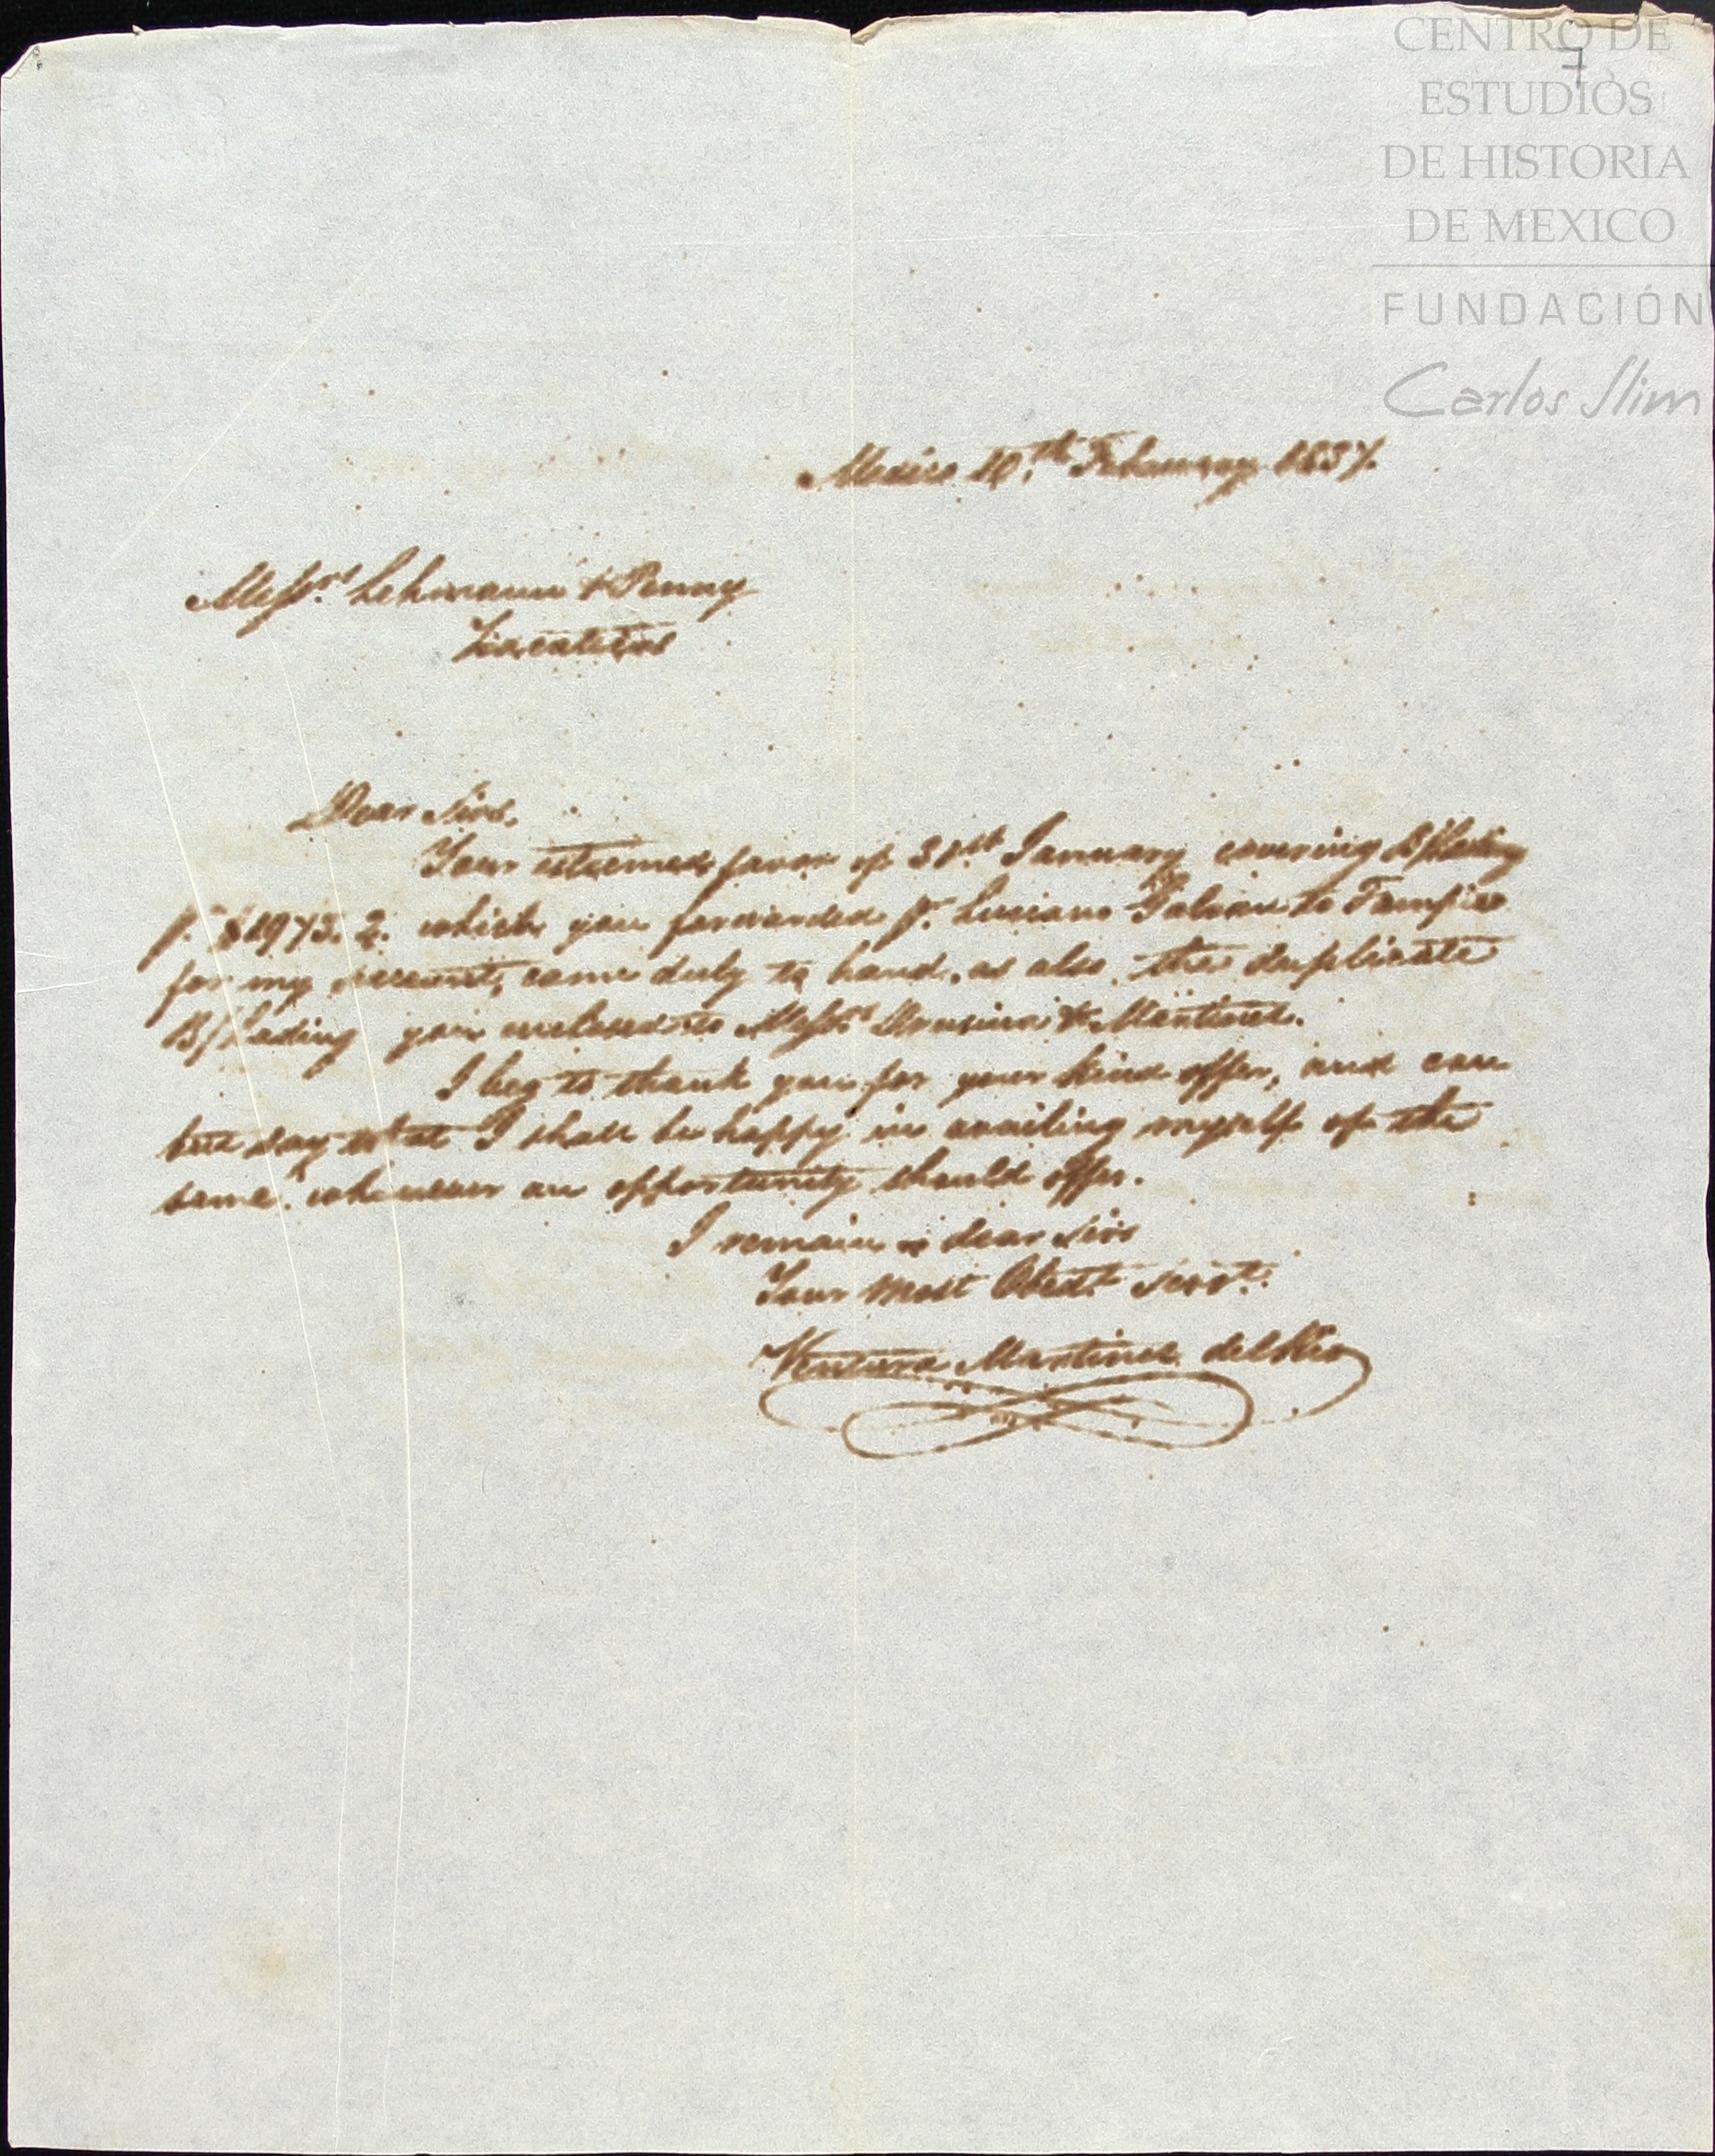 CENTRO DE
ESTUDIOS
DE HISTORIA
DE MEXICO
FUNDACIÓN
Carlos Slim
7
Mexico 10.th February 1837.
Messrs Lehmann & Penny
Zacatecas
Dear Sirs.
Your esteemed favor of 31st January covering B/Lading
p. $1973.2. which you forwarded p. Luciano Galvan to Tampico
for my account, came duly to hand, as also the duplicate
B/Lading you enclosed to Messrs Drusina & Martinez.
I beg to thank you for your kind offer, and can
but say that I shall be happy in availing myself of the
same whenever an opportunity should offer.
I remain dear Sirs
Your most Obedt Servt.
Ventura Martinez del Rio